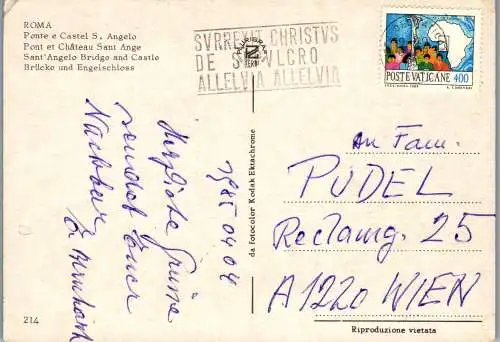 ROMA
Ponte e Castel S. Angelo
Pont et Château Sant Ange
Sant'Angelo Bridge and Castle
Brücke und Engelschloss
SVRREXIT CHRISTVS
DE SEPVLCRO
ALLELVIA ALLELVIA
POSTE VATICANE 400
1985 04 04
Herzliche Grüsse
sendet Euer
Nachbar
Bernhard
da fotocolor Kodak Ektachrome
An Fam.
PUDEL
Reclamg. 25
A 1220 WIEN
214
Riproduzione vietata